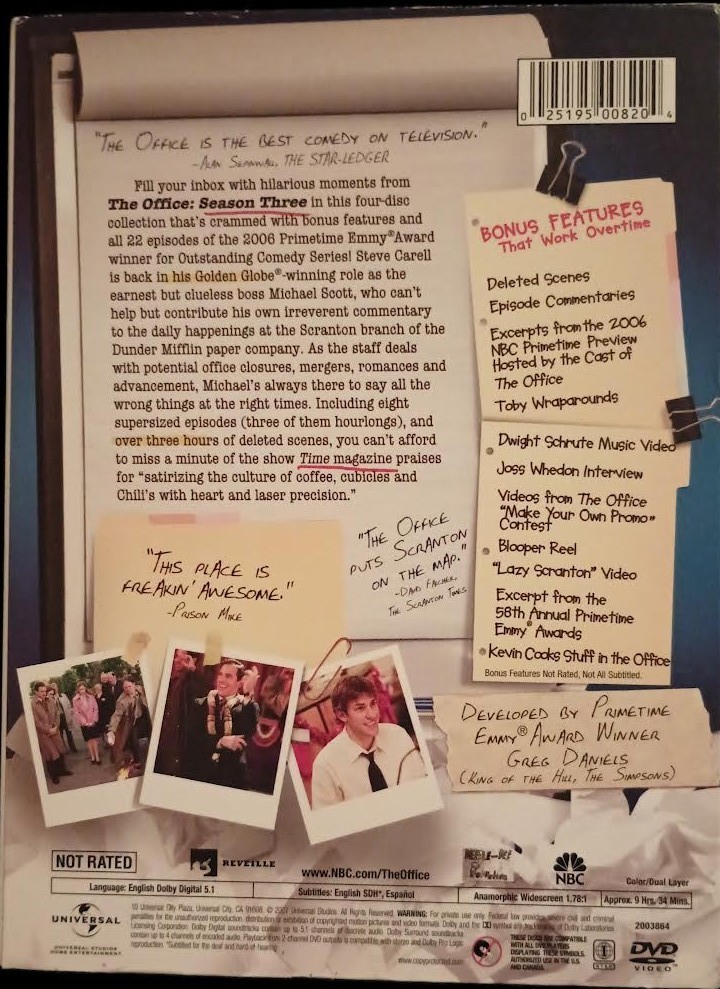 0 25195 00820 4
"THE OFFICE IS THE BEST COMEDY ON TELEVISION."
-ALAN SEPINWALL, THE STAR-LEDGER
Fill your inbox with hilarious moments from
The Office: Season Three in this four-disc
collection that's crammed with bonus features and
all 22 episodes of the 2006 Primetime Emmy® Award
winner for Outstanding Comedy Series! Steve Carell
is back in his Golden Globe®-winning role as the
earnest but clueless boss Michael Scott, who can't
help but contribute his own irreverent commentary
to the daily happenings at the Scranton branch of the
Dunder Mifflin paper company. As the staff deals
with potential office closures, mergers, romances and
advancement, Michael's always there to say all the
wrong things at the right times. Including eight
supersized episodes (three of them hourlongs), and
over three hours of deleted scenes, you can't afford
to miss a minute of the show Time magazine praises
for "satirizing the culture of coffee, cubicles and
Chili's with heart and laser precision."
"THIS PLACE IS
FREAKIN' AWESOME."
-PRISON MIKE
"THE OFFICE
PUTS SCRANTON
ON THE MAP."
THE SCRANTON TIMES
BONUS FEATURES
That Work Overtime
Deleted Scenes
Episode Commentaries
Excerpts from the 2006
NBC Primetime Preview
Hosted by the Cast of
The Office
Toby Wraparounds
Dwight Schrute Music Video
Joss Whedon Interview
Videos from The Office
"Make Your Own Promo"
Contest
Blooper Reel
"Lazy Scranton" Video
Excerpt from the
58th Annual Primetime
Emmy® Awards
Kevin Cooks Stuff in the Office
Bonus Features Not Rated, Not All Subtitled.
DEVELOPED BY PRIMETIME
EMMY® AWARD WINNER
GREG DANIELS
(KING OF THE HILL, THE SIMPSONS)
NOT RATED
REVEILLE
www.NBC.com/TheOffice
NBC
Color/Dual Layer
Language: English Dolby Digital 5.1
Subtitles: English SDH*, Español
Anamorphic Widescreen 1.78:1
Approx. 9 Hrs. 34 Mins.
UNIVERSAL
UNIVERSAL STUDIOS
HOME ENTERTAINMENT
10 Universal City Plaza, Universal City, CA 91608. © 2007 Universal Studios. All Rights Reserved. WARNING: For private use only. Federal law provides severe civil and criminal
penalties for the unauthorized reproduction, distribution or exhibition of copyrighted motion pictures and video formats. Dolby and the DD symbol are trademarks of Dolby Laboratories
Licensing Corporation. Dolby Digital soundtracks contain up to 5.1 channels of discrete audio. Dolby Surround soundtracks
contain up to 4 channels of encoded audio. Playback from 2-channel DVD outputs is compatible with stereo and Dolby Pro Logic
reproduction. *Subtitled for the deaf and hard of hearing
www.copyprotected.com
THESE DISCS ARE COMPATIBLE
WITH ALL DVD PLAYERS
DISPLAYING THESE SYMBOLS.
AUTHORIZED USE IN THE U.S.
AND CANADA.
1
2003864
DVD
VIDEO